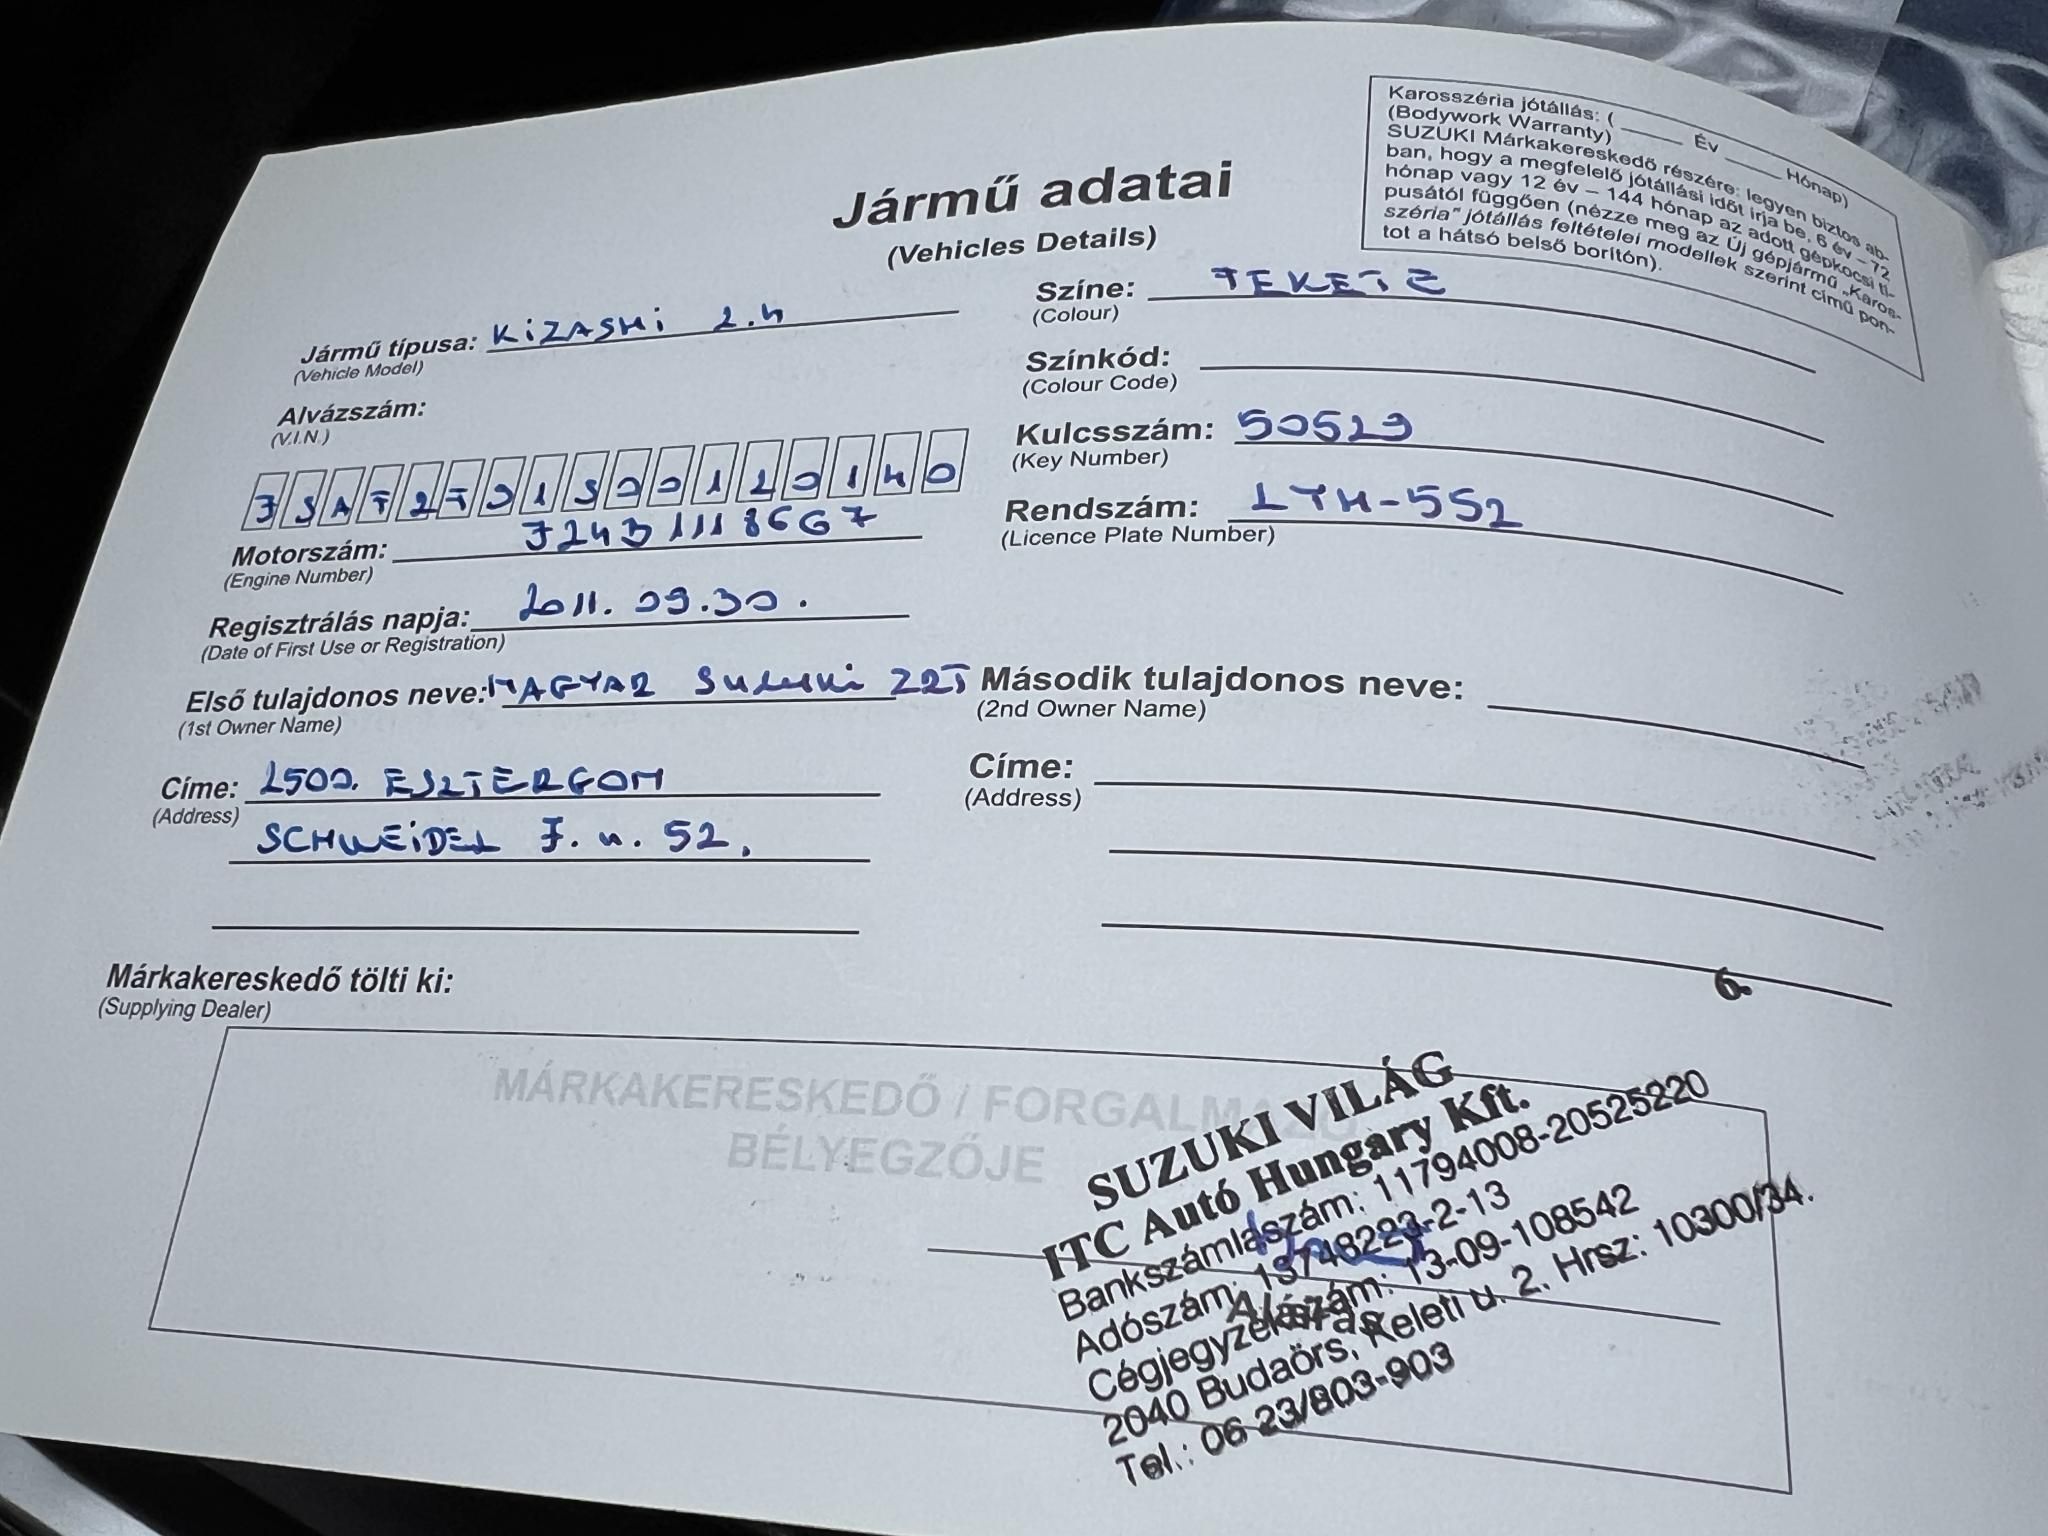 Karosszéria jótállás: ( ____ Év ____ Hónap)
(Bodywork Warranty)
SUZUKI Márkakereskedő részére: legyen biztos ab-
ban, hogy a megfelelő jótállási időt írja be, 6 év – 72
hónap vagy 12 év – 144 hónap az adott gépkocsi tí-
pusától függően (nézze meg az Új gépjármű „Karos-
széria" jótállás feltételei modellek szerint című pon-
tot a hátsó belső borítón).
Jármű adatai
(Vehicles Details)
Jármű típusa: KiZASHi 2.4
(Vehicle Model)
Alvázszám:
(V.I.N.)
JSAFZT91S00120140
Motorszám: J24B1118667
(Engine Number)
Regisztrálás napja: 2011.09.30.
(Date of First Use or Registration)
Színe: FEKETE
(Colour)
Színkód:
(Colour Code)
Kulcsszám: 50529
(Key Number)
Rendszám: LTH-552
(Licence Plate Number)
Első tulajdonos neve: MAGYAR Suzuki ZRT
(1st Owner Name)
Címe: 2500. ESZTERGOM
(Address)
SCHWEiDEL J. u. 52.
Második tulajdonos neve:
(2nd Owner Name)
Címe:
(Address)
Márkakereskedő tölti ki:
(Supplying Dealer)
MÁRKAKERESKEDŐ / FORGALMAZÓ
BÉLYEGZŐJE
6.
SUZUKI VILÁG
ITC Autó Hungary Kft.
Bankszámlaszám: 11794008-20525220
Adószám: 13748223-2-13
Cégjegyzékszám: 13-09-108542
2040 Budaörs, Keleti u. 2. Hrsz: 10300/34.
Tel.: 06 23/803-903
Aláírás